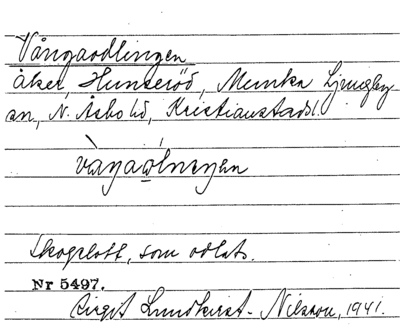 Vångaodlingen
åker, Hunseröd, Munka Ljungby
sn, N. Åsbo hd, Kristianstads l.
Skogslott, som odlats.
Nr 5497.
Birgit Lundkvist-Nilsson, 1941.